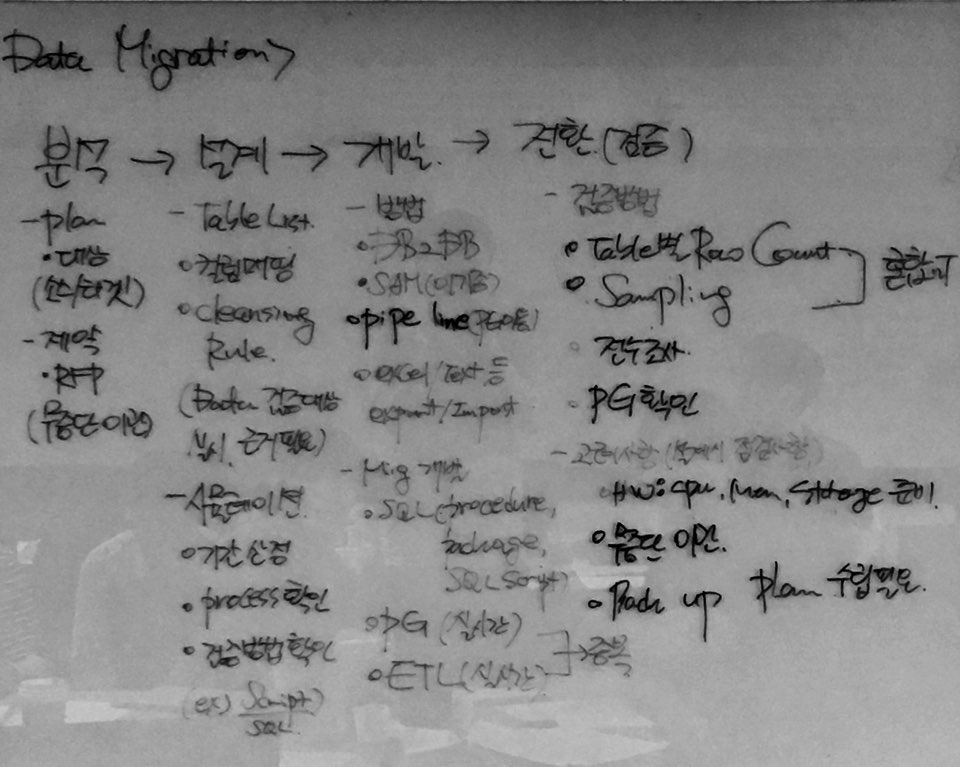 Data Migration>
분석 → 설계 → 개발. → 전환.(검증)
- plan
• 대상
(소스/타겟)
- 제약
• RFP
(무중단 이관)
- Table List.
• 컬럼매핑
• cleansing
Rule.
(Data 검증대상
근거필요)
- 시뮬레이션.
• 기간산정
• process 확인
• 검증방법확인
(ex) Script)
SQL.
- 방법
• DB2DB
• SAM(이기종)
• pipe line
• excel/Text 등
export/Import
- Mig 개발
• SQL(procedure,
package,
SQL Script)
• PG (실시간)
• ETL(실시간)
→ 중복
- 검증방법
• Table별 Row Count
• Sampling
• 전수조사.
• PG 확인
- 고려사항 (설계시 점검사항)
• HW: cpu, Mem, Storage 준비.
• 무중단 이관.
• Back up Plan 수립필요.